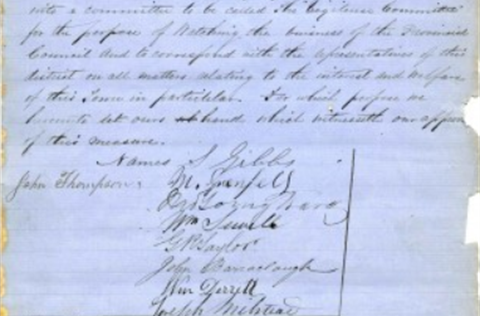 into a committee to be called the "Vigilence Committee"
for the purpose of Watching the business of the Provincial
Council and to correspond with the representatives of this
district on all matters relating to the interest and welfare
of this Town in particular. For which purpose we
hereunto set ours hand which witnesseth our approv
of this measure.
Names S Gibbs
John Thompson. M. Grenfell
Wm Sewell
G R Taylor
John Barraclough
Wm Derrett
Joseph